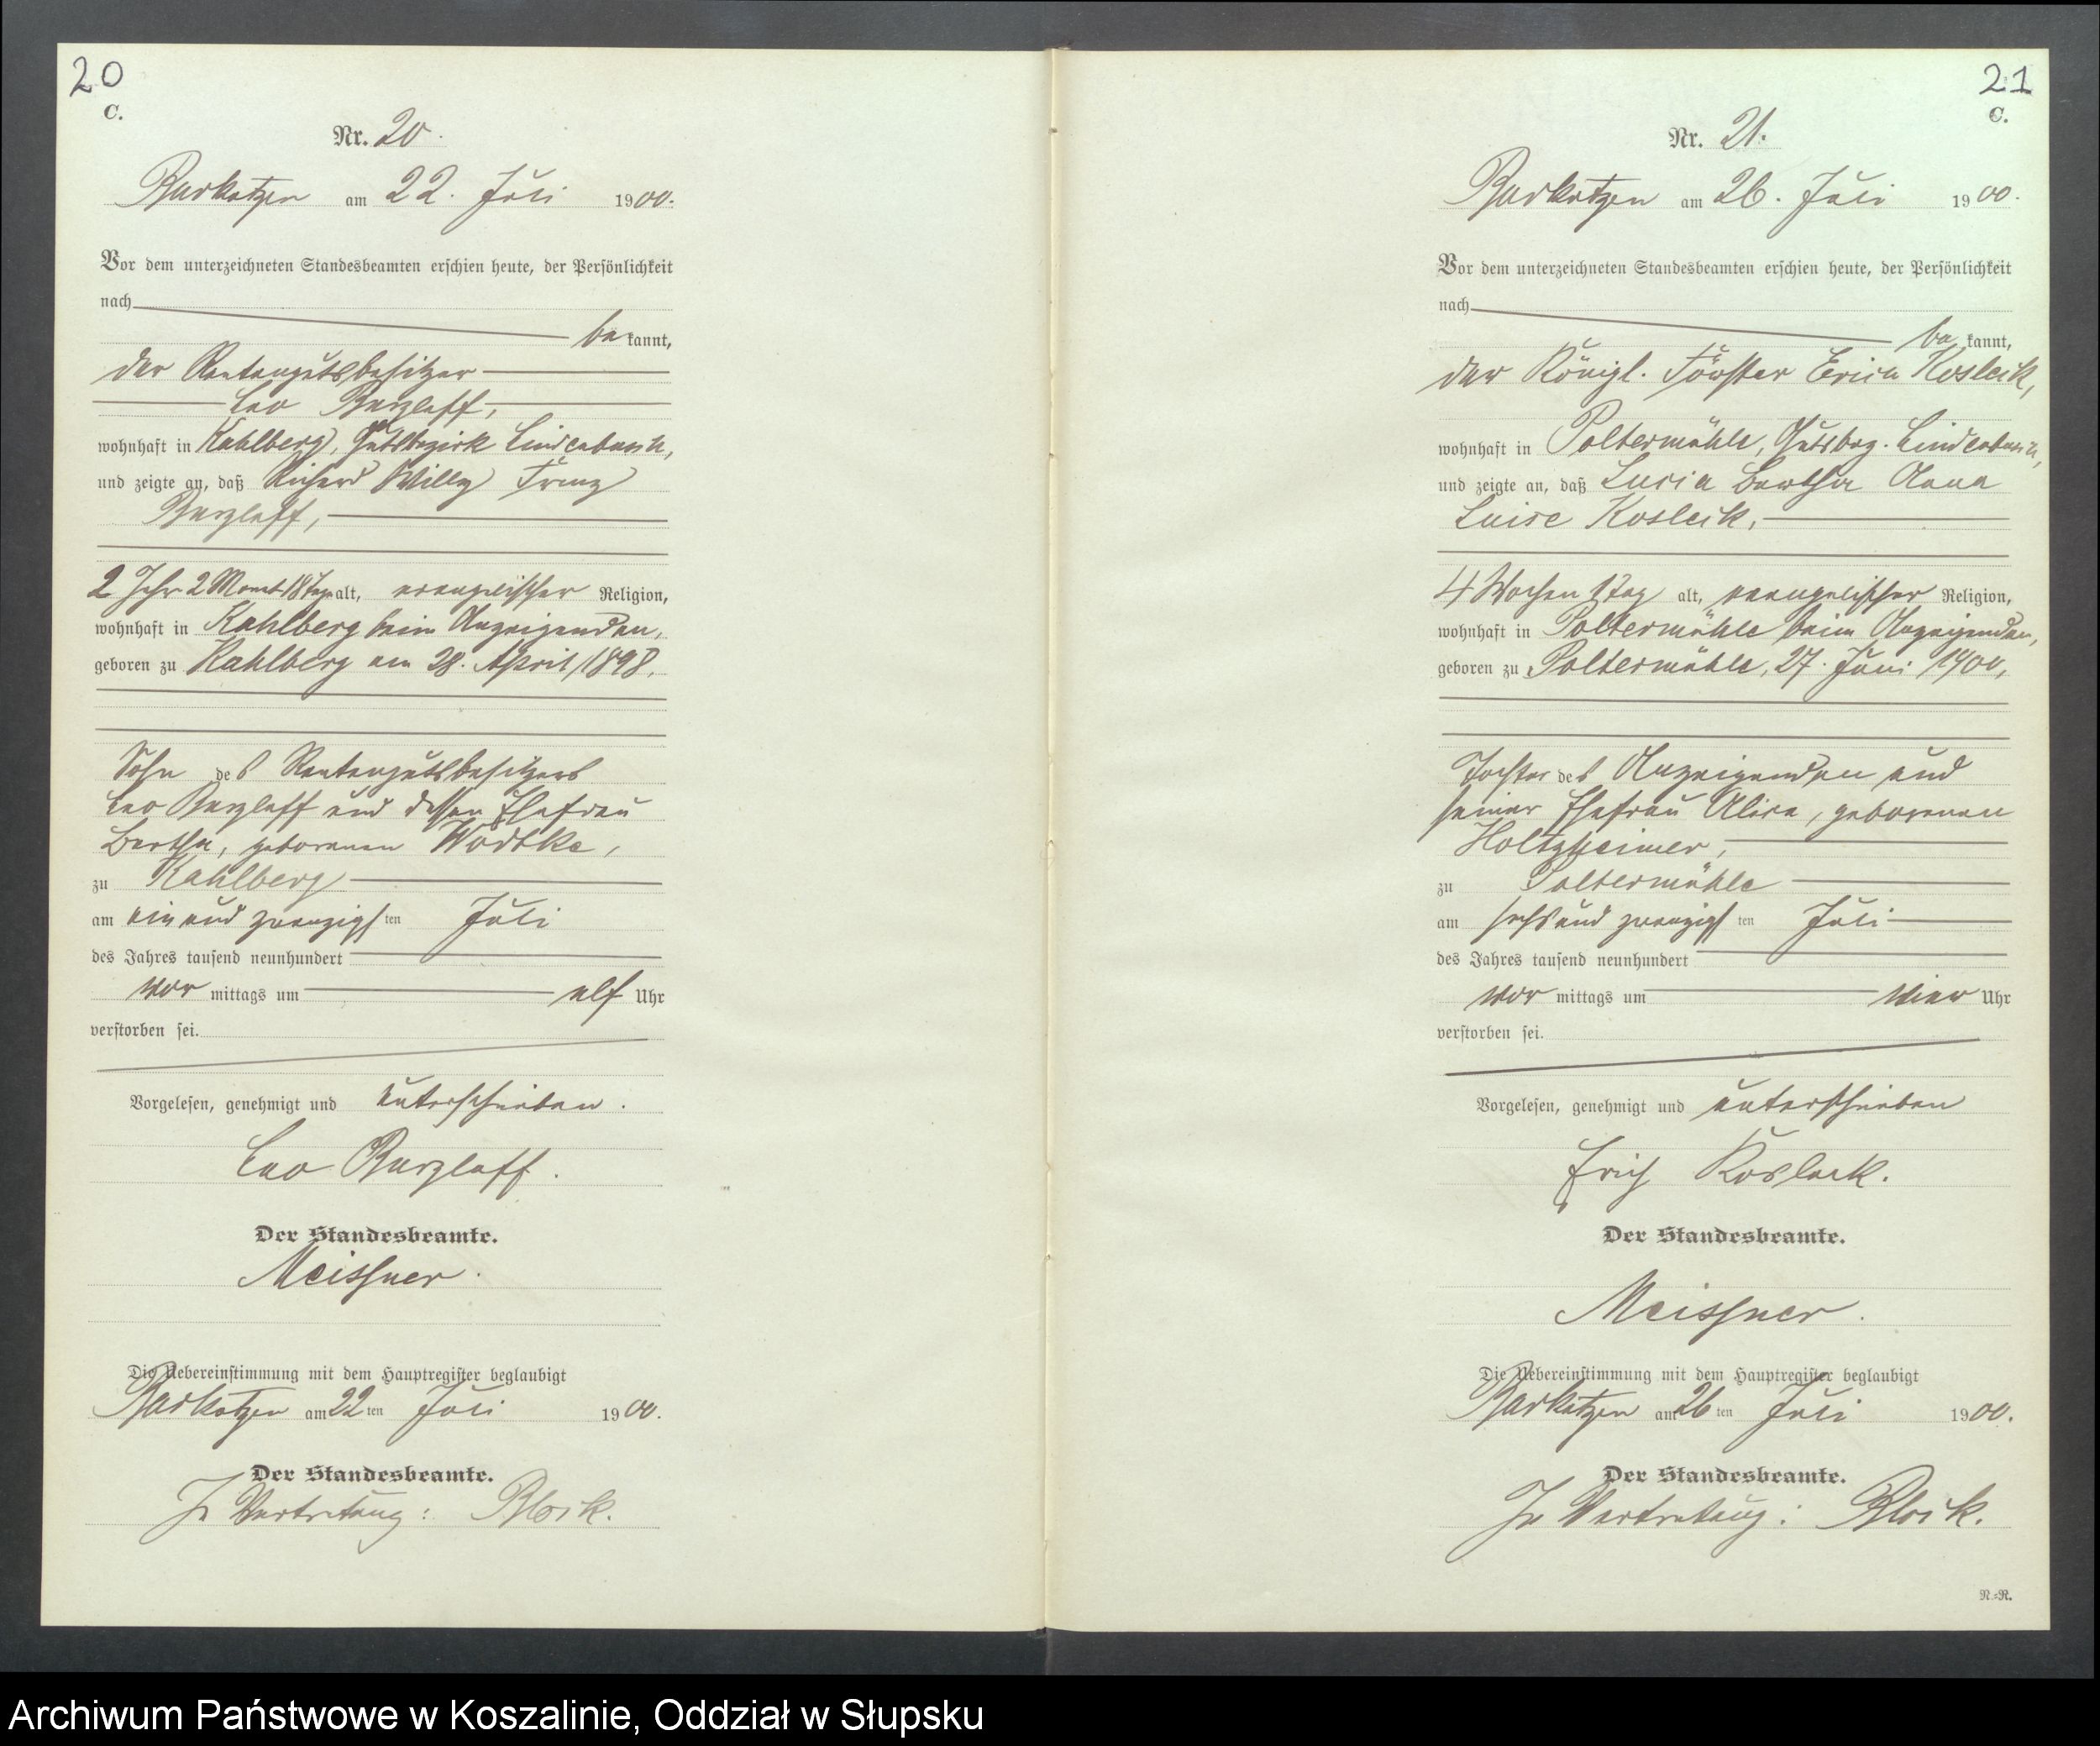 20
C.
Nr. 20.
Barkotzen am 22. Juli 1900.
Vor dem unterzeichneten Standesbeamten erschien heute, der Persönlichkeit
nach
bekannt,
der Rentengutsbesitzer
Leo Burzlaff,
wohnhaft in Kahlberg, Gutsbezirk Lindenbusch,
und zeigte an, daß Richard Willy Franz
Burzlaff,
2 Jahr 2 Monat 18 Tage alt, evangelischer Religion,
wohnhaft in Kahlberg beim Anzeigenden,
geboren zu Kahlberg am 28. April 1898,
Sohn des Rentengutsbesitzers
Leo Burzlaff und dessen Ehefrau
Bertha, geborenen Wodtke,
zu Kahlberg
am ein und zwanzigsten Juli
des Jahres tausend neunhundert
vormittags um elf Uhr
verstorben sei.
Vorgelesen, genehmigt und unterschrieben.
Leo Burzlaff.
Der Standesbeamte.
Meissner.
Die Uebereinstimmung mit dem Hauptregister beglaubigt
Barkotzen am 22ten Juli 1900.
Der Standesbeamte.
In Vertretung: Block.
21
C.
Nr. 21.
Barkotzen am 26. Juli 1900.
Vor dem unterzeichneten Standesbeamten erschien heute, der Persönlichkeit
nach
bekannt,
der Königl. Förster Erich Koslock,
wohnhaft in Poltermühle, Gutsbez. Lindenbusch,
und zeigte an, daß Lucia Bertha Anna
Luise Koslock,
4 Wochen 1 Tag alt, evangelischer Religion,
wohnhaft in Poltermühle beim Anzeigenden,
geboren zu Poltermühle, 27. Juni 1900,
Tochter des Anzeigenden und
seiner Ehefrau Alice, geborenen
Holtzheimer,
zu Poltermühle
am sechs und zwanzigsten Juli
des Jahres tausend neunhundert
vormittags um vier Uhr
verstorben sei.
Vorgelesen, genehmigt und unterschrieben
Erich Koslock.
Der Standesbeamte.
Meissner.
Die Uebereinstimmung mit dem Hauptregister beglaubigt
Barkotzen am 26ten Juli 1900.
Der Standesbeamte.
In Vertretung: Block.
N.=R.
Archiwum Państwowe w Koszalinie, Oddział w Słupsku